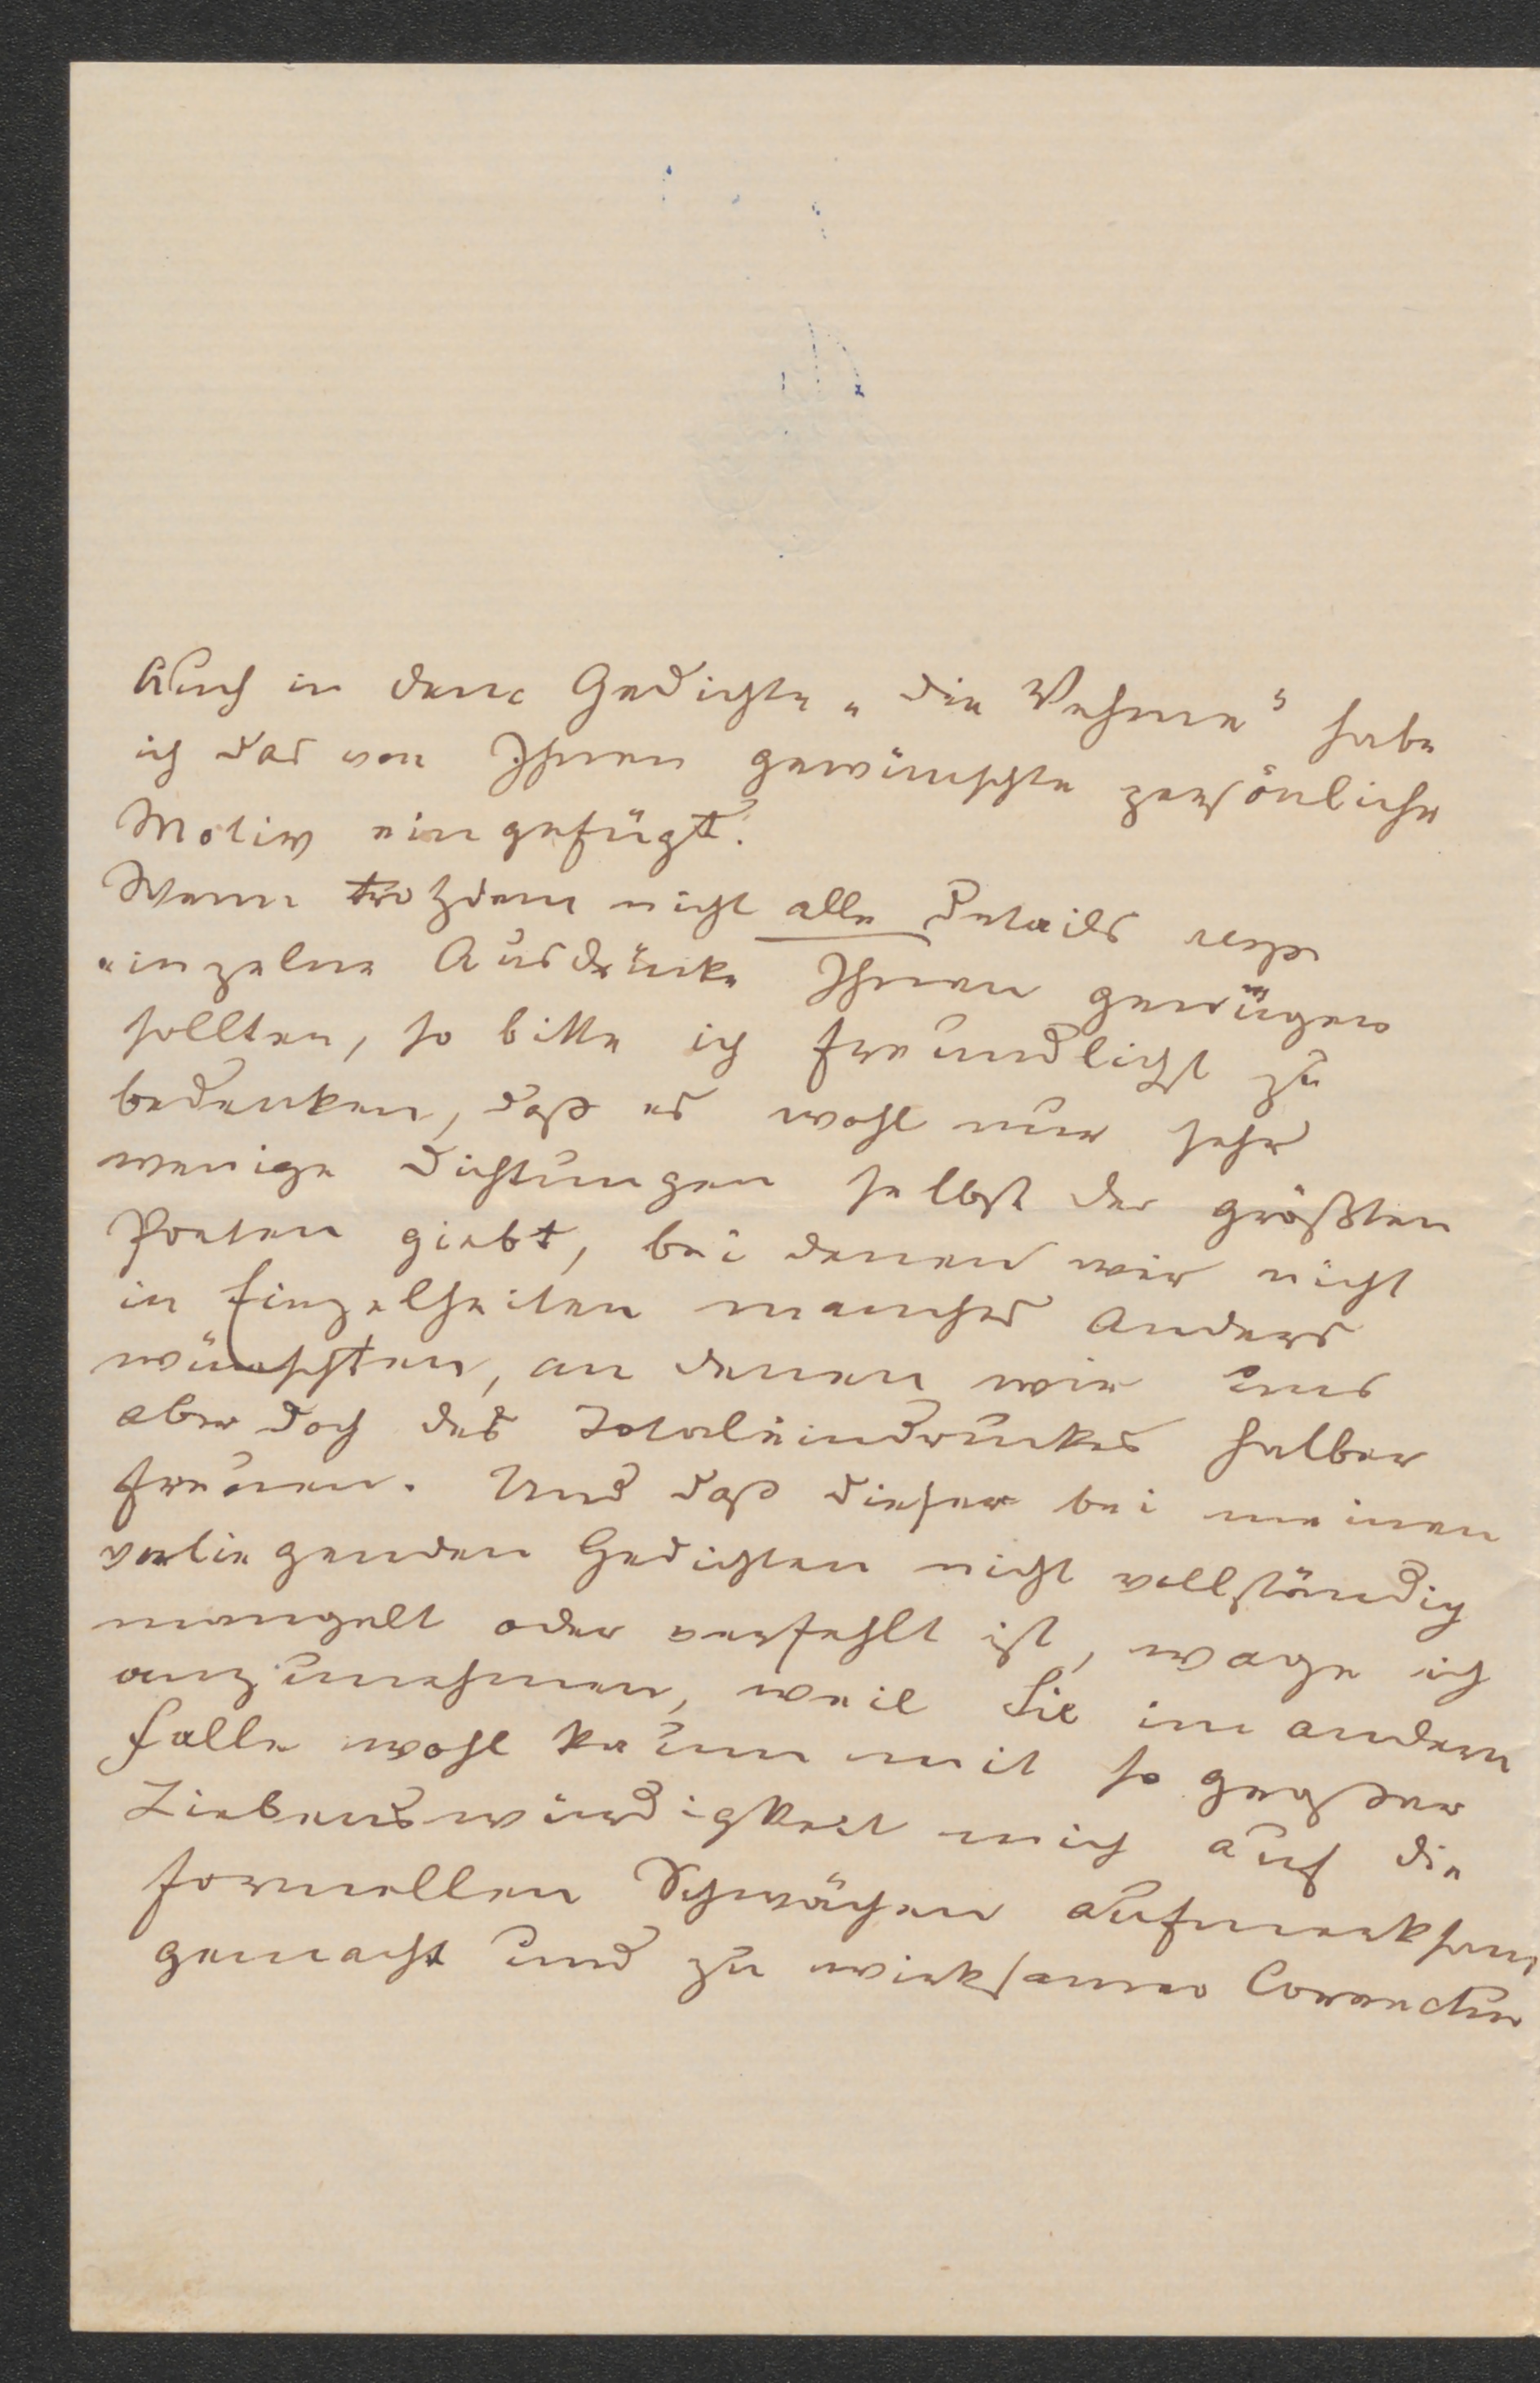 Auch in dem Gedichte „die Vehme“ habe
ich das von Ihnen gewünschte persönliche
Motiv eingefügt.
Wenn trotzdem nicht alle Details resp
einzelne Ausdrücke Ihnen genügen
sollten, so bitte ich freundlichst zu
bedenken, daß es wohl nur sehr
wenige Dichtungen selbst der größten
Poeten giebt, bei denen wir nicht
in Einzelheiten manches anders
wünschten, an denen wir uns
aber doch des Totaleindruckes halber
freuen. Und daß dieser bei meinen
vorliegenden Gedichten nicht vollständig
mangelt oder verfehlt ist, wage ich
anzunehmen, weil Sie im andern
Falle wohl kaum mit so großer
Liebenswürdigkeit mich auf die
formellen Schwächen aufmerksam
gemacht und zu wirksamer Correctur